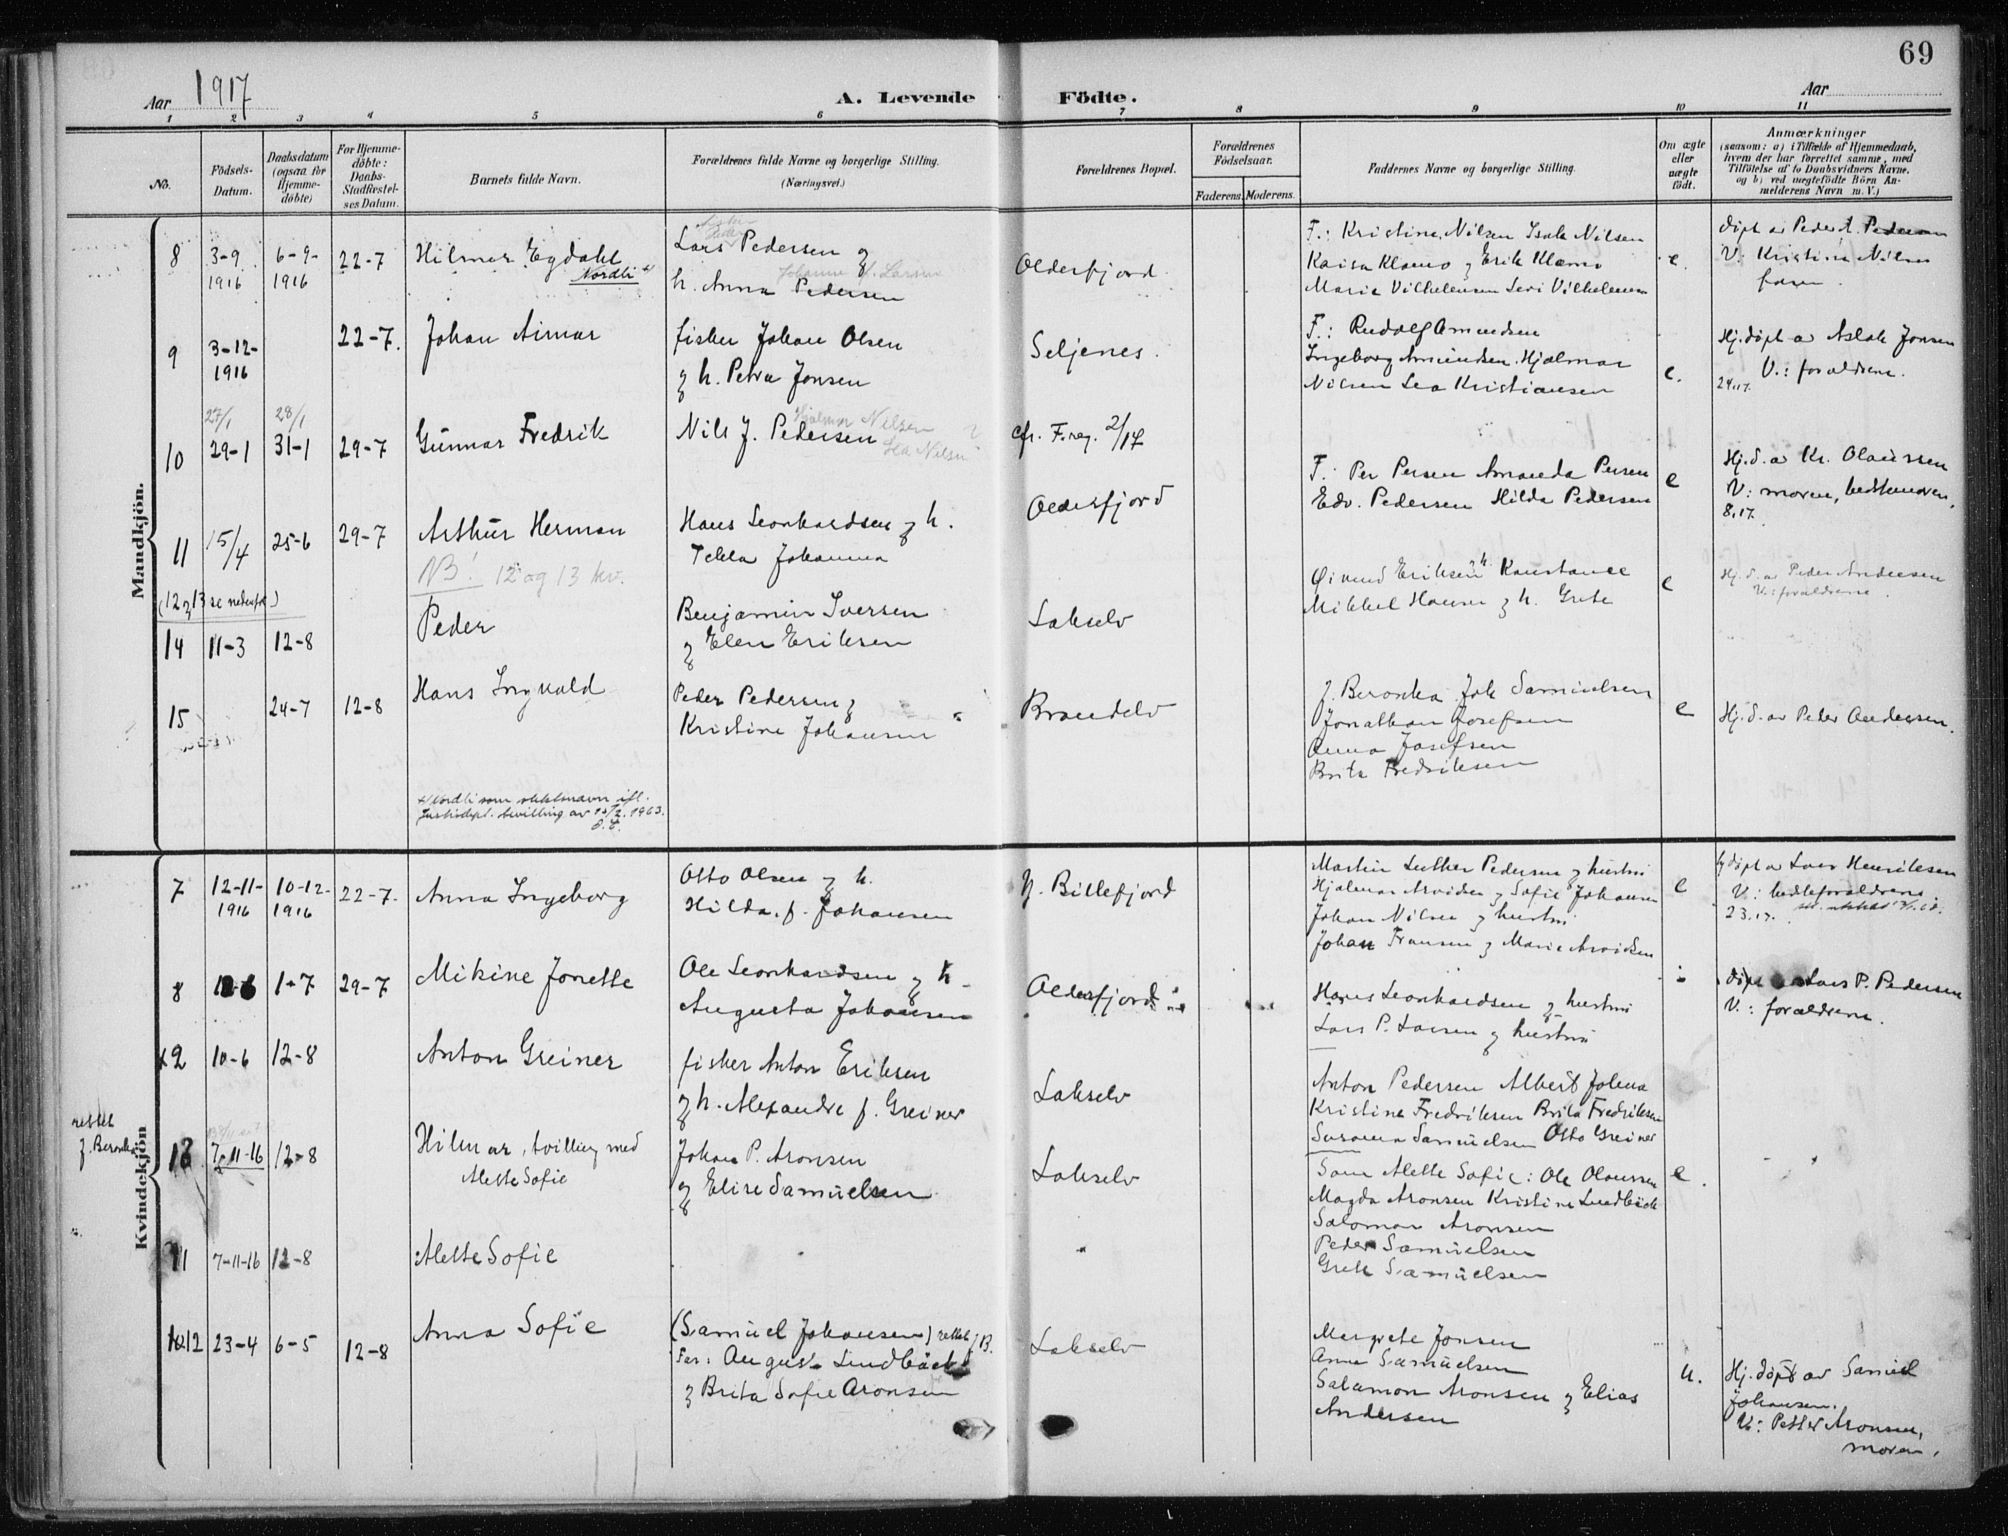 69
Aar 1917
A. Levende Födte.
Aar
1 2 3 4 5 6 7 8 9 10 11
No.
Födsels-Datum.
Daabsdatum (ogsaa for Hjemme-döbte)
For Hjemme-döbte: Daabs-Stadfæstel-ses Datum.
Barnets fulde Navn.
Forældrenes fulde Navne og borgerlige Stilling.
(Næringsvei.)
Forældrenes Bopæl.
Forældrenes Födselsaar.
Faderens. Moderens.
Faddernes Navne og borgerlige Stilling.
Om ægte eller uægte födt.
Anmærkninger
(saasom: a) i Tilfælde af Hjemmedaab,
hvem der har forrettet samme, med
Tilföielse af to Daabsvidners Navne,
og b) ved uægtefödte Börn An-
melderens Navn m. V.)
Mandkjön.
8 3-9 1916 6-9- 1916 22-7
Hilmar Egdahl
Nordli x/
Lars Pedersen og
h. Anna Pedersen
Olderfjord
F.: Kristine Nilsen Isak Nilsen
Kaisa Klemo og Erik Klemo
Marie Vilhelmsen Levi Vilhelmsen
e.
döpt av Peder A. Pedersen
V: Kristine Nilsen
faren.
9 3-12- 1916 22-7.
Johan Aimar
fisker Johan Olsen
og h. Petra Jonsen
Seljenes.
F.: Rudolf Amundsen
Ingeborg Amundsen. Hjalmar
Nilsen Lea Kristiansen
e.
Hj.döpt av Aslak Jonsen
V.: forældrene.
24.17.
27/1 28/1
10 29-1 31-1 29-7
Gunnar Fredrik
Nils J. Pedersen
Hjalmar Nilsen
Lea Nilsen
cfr. F.reg. 2/17
F: Per Persen Amanda Persen
Edv. Pedersen Hilda Pedersen
e
Hj.d. av Kr. Olaussen
V: moren, bedstemoren,
8.17.
11 15/4 25-6 29-7
Arthur Herman
Hans Leonhardsen og h.
Tekla Johanna
Olderfjord
NB! 12 og 13 kv.
(12 og 13 se nedenfor)
Øivind Eriksen og h. Konstance
Mikkel Hansen og h. Grete
e
Hj.d. av Peder Andersen
V: forældrene.
14 11-3 12-8
Peder
Benjamin Iversen
og Elen Eriksen
Lakselv
15 24-7 12-8
Hans Ingvald
Peder Pedersen og
Kristine Johansen
Brandelv
J. Beronka Joh Samuelsen
Jonathan Josefsen
Anna Josefsen
Brita Fredriksen
e
Hj.d. av Peder Andersen.
x/ Nordli som slektsnavn ifl.
Justisdept. bevilling av 15/2. 1963.
Kvindekjön
7 12-11- 1916 10-12- 1916 22-7.
Anna Ingeborg
Otto Olsen og h.
Hilda. f. Johansen
Y. Billefjord
Martin Luther Pedersen og hustru
Hjalmar Arvidsen og Sofie Johansen
Johan Nilsen og hustru
Johan Fransen og Marie Arvidsen
e
hj döpt av Lars Henriksen
V: bedsteforældrene.
23.17.
8 1-7 29-7
Mikine Jonette
Ole Leonhardsen og h
Augusta Johansen
Olderfjord
Hans Leonhardsen og hustru
Lars P. Larsen og hustru
döpt av Lars P. Pedersen
V.: forældrene.
x2 10-6 12-8
Anton Greiner
fisker Anton Eriksen
og h. Alexandra f. Greiner
Lakselv
Anton Pedersen Albert Johna
Kristine Fredriksen Brita Fredriksen
Susanna Samuelsen Otto Greiner
rettet
J. Beronka
13 7-11-16 12-8
Hilmar, tvilling med
Alette Sofie
Johan P. Aronsen
og Elise Samuelsen
Lakselv
Som Alette Sofie: Ole Olaussen
Magda Aronsen Kristine Lindbäck
Salomon Aronsen
Peder Samuelsen
Grete Samuelsen
e.
11 7-11-16 12-8
Alette Sofie
12 23-4 6-5 12-8
Anna Sofie
(Samuel Johansen) rettet J.B.
Far: August Lindbäck
og Brita Sofie Aronsen
Lakselv
Margrete Jonsen
Anna Samuelsen
Salamon Aronsen og Elias
Andersen
u.
Hj.döpt av Samuel
Johansen.
V: Petter Aronsen,
moren.